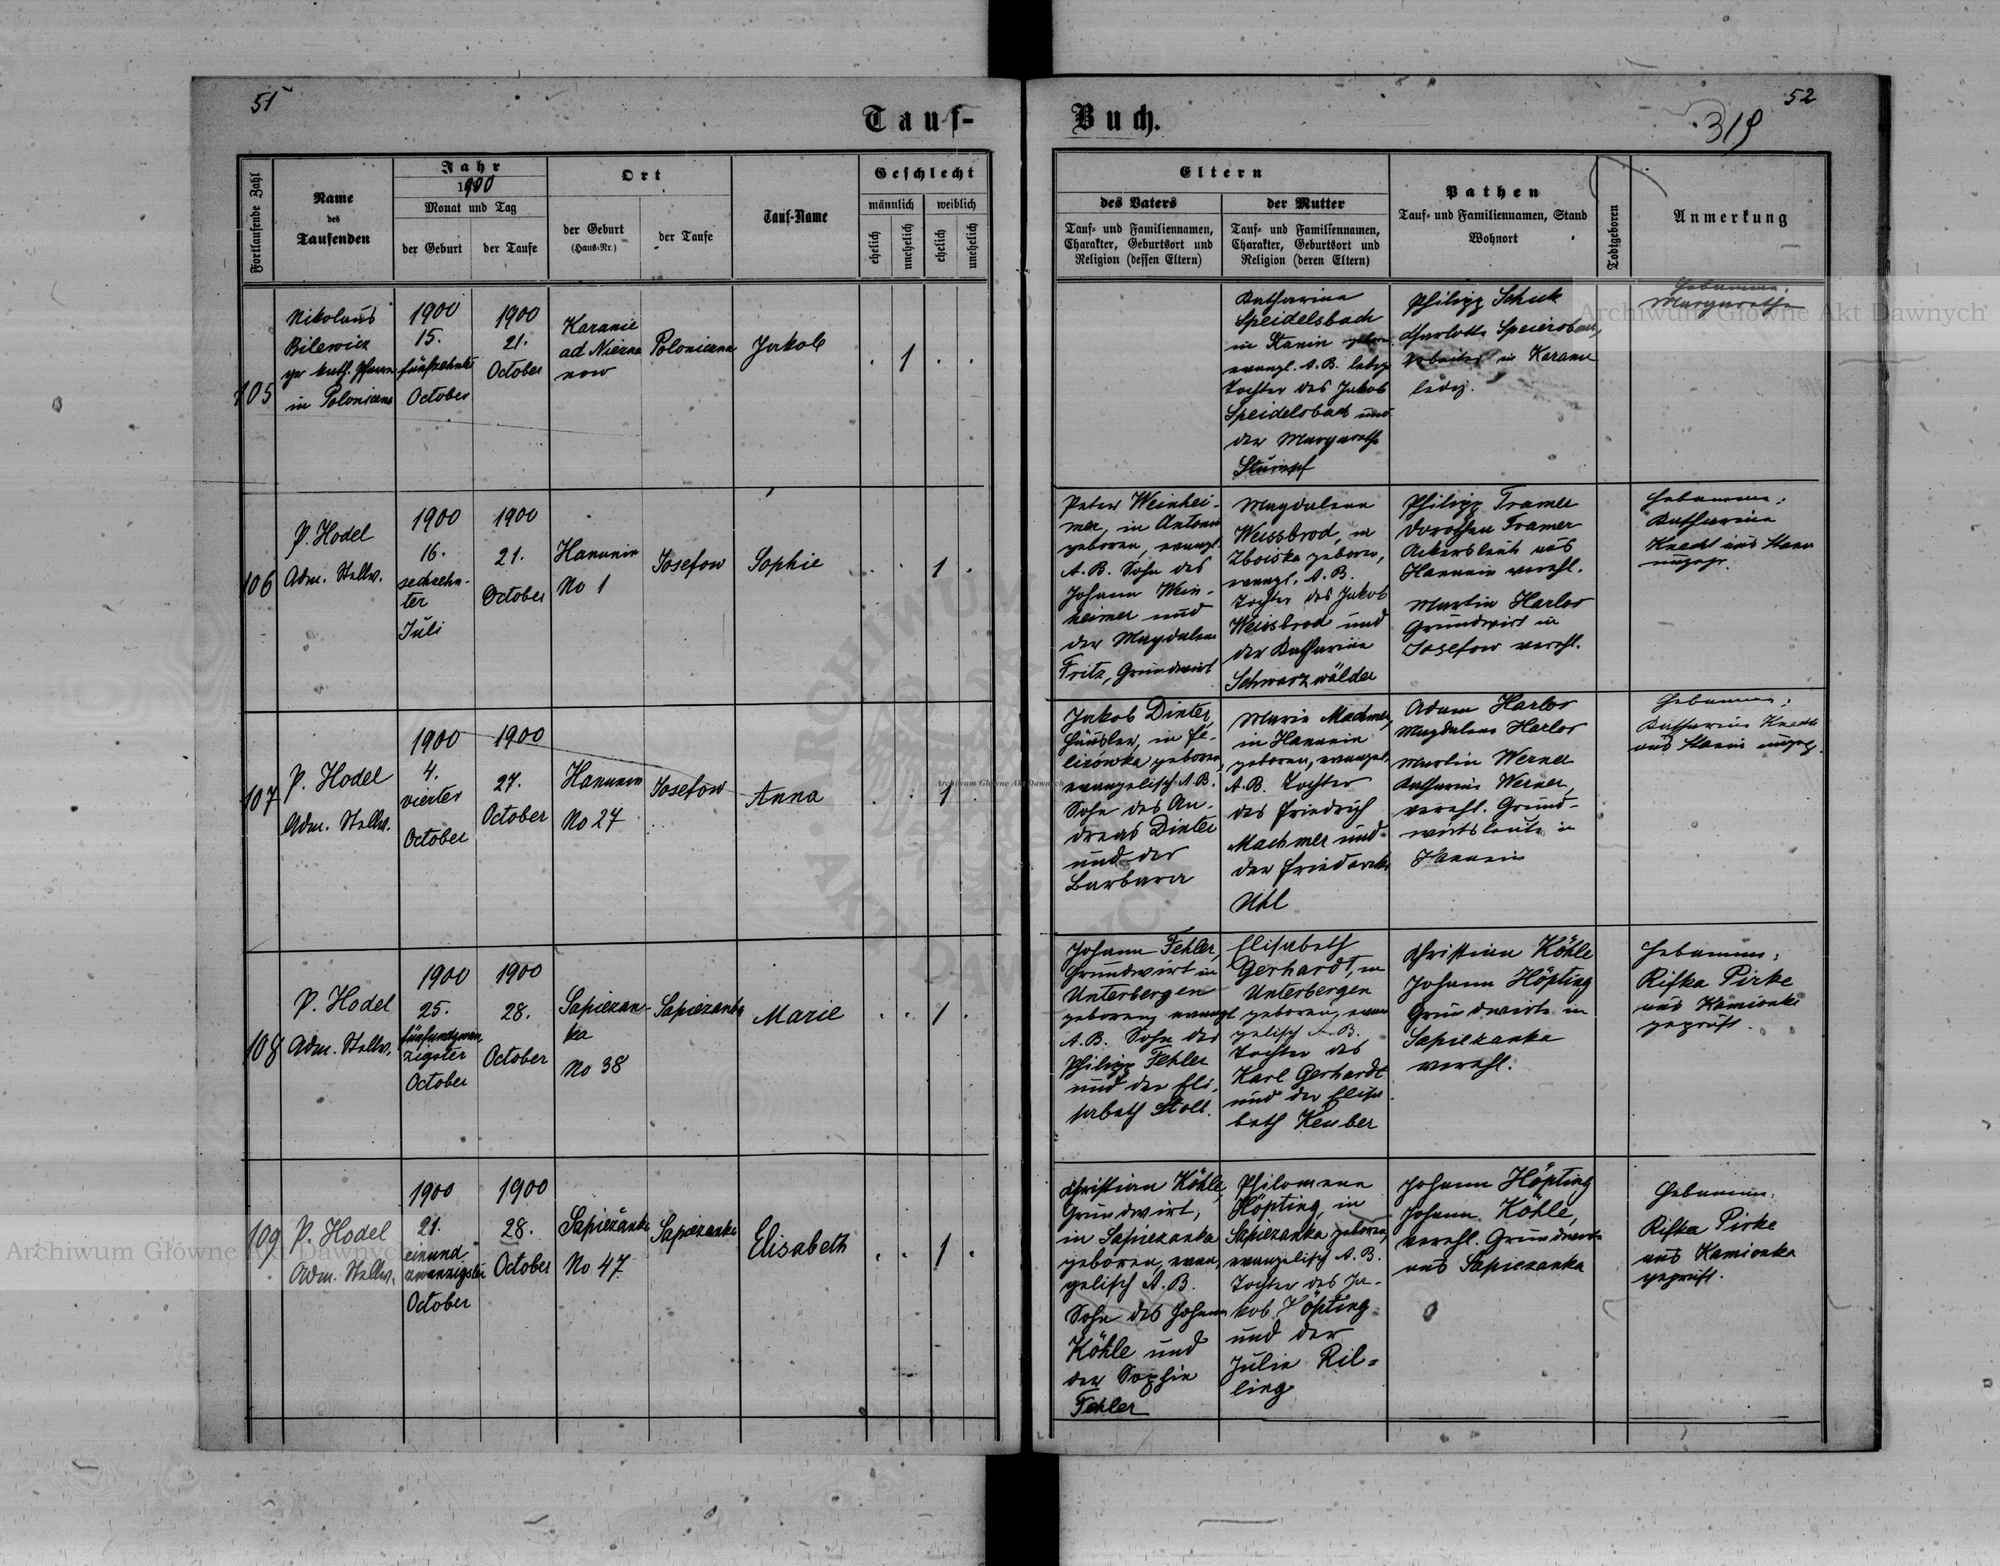 51
Tauf-
Fortlaufende Zahl
Name
des
Taufenden
Jahr
1900
Monat und Tag
der Geburt
der Taufe
Ort
der Geburt
(Haus-Nr.)
der Taufe
Tauf-Name
Geschlecht
männlich
weiblich
ehelich
unehelich
ehelich
unehelich
105
Nikolaus
Bilewicz
in Polonicena
1900
15.
fünfzehnte
October
1900
21.
October
Karanie
ad Niezna
now
Polonicena
Jakob
1
106
P. Hodel
Adm. Stellv.
1900
16.
sechzehn-
ter
Juli
1900
21.
October
Hanunin
No 1
Josefow
Sophie
1
107
P. Hodel
Adm. Stellv.
1900
4.
vierter
October
1900
27.
October
Hanunin
No 27
Josefow
Anna
1
108
P. Hodel
Adm. Stellv.
1900
25.
fünfundzwan
zigster
October
1900
28.
October
Sapiezan-
ka
No 38
Sapiezanka
Marie
1
109
P. Hodel
Adm. Stellv.
1900
21.
einund
zwanzigster
October
1900
28.
October
Sapiežanka
No 47
Sapiezanka
Elisabeth
1
52
319
Buch.
Eltern
des Vaters
Tauf- und Familiennamen,
Charakter, Geburtsort und
Religion (dessen Eltern)
der Mutter
Tauf- und Familiennamen,
Charakter, Geburtsort und
Religion (deren Eltern)
Pathen
Tauf- und Familiennamen, Stand
Wohnort
Todtgeboren
Anmerkung
Katharina
Speidelsbach
in Stanin
evangl. A. B. ledige
Tochter des Jakob
Speidelsbach und
der Margarethe
Stumpf
Philipp Schuk
Charlotte
in Karanie
ledig.
Hebamme:
Margarethe
Peter Weinhei-
mer, in
geboren, evangl.
A. B. Sohn des
Johann Wein-
heimer und
der Magdalena
Fritz, Grundwirt
Magdalena
Weissbrod, in
Zboiska geboren,
evangl. A. B.
Tochter des Jakob
Weissbrod und
der Katharina
Schwarzwälder
Philipp Tramer
Dorothea Tramer
Ackersleute aus
Hanunin verehl.
Martin Harlos
Grundwirt in
Josefow verehl.
Hebamme:
Katharina
Knecht aus Stanin
ungepr.
Jakob Dinter,
Häusler, in
geboren,
evangelisch A. B.
Sohn des An-
dreas Dinter
und der
Barbara
Marie Machmer,
in Hanunin
geboren, evangel.
A. B. Tochter
des Friedrich
Machmer und
der Friederike
Uhl
Adam Harlos
Magdalena Harlos
Martin Werner
Katharina Werner,
verehl. Grund-
wirtsleute in
Hanunin
Hebamme:
Katharina Knecht
aus Stanin ungepr.
Johann Fehler,
Grundwirt in
Unterbergen
geboren, evangl.
A. B. Sohn des
Philipp Fehler
und der Eli-
sabeth Stoll.
Elisabeth
Gerhardt, in
Unterbergen
geboren, evan
gelisch A. B.
Tochter des
Karl Gerhardt
und der Elisa
beth Keuber
Christian Köhle
Johann Höpting
Grundwirte in
Sapiezanka
verehl.
Hebamme:
Rifka Pirke
aus Kamionka
geprüft.
Christian Köhle,
Grundwirt,
in Sapiezanka
geboren, evan,
gelisch A. B.
Sohn des Johann
Köhle und
der Sophie
Fehler
Philomena
Höpting, in
Sapiezanka geboren,
evangelisch A. B.
Tochter des Ja-
kob Höpting
und der
Julie Ril-
ling
Johann Höpting
Johann Köhle,
verehl. Grundwirte
aus Sapiezanka
Hebamme:
Rifka Pirke
aus Kamionka
geprüft.
Archiwum Główne Akt Dawnych
Archiwum Główne Akt Dawnych
Archiwum Główne Akt Dawnych